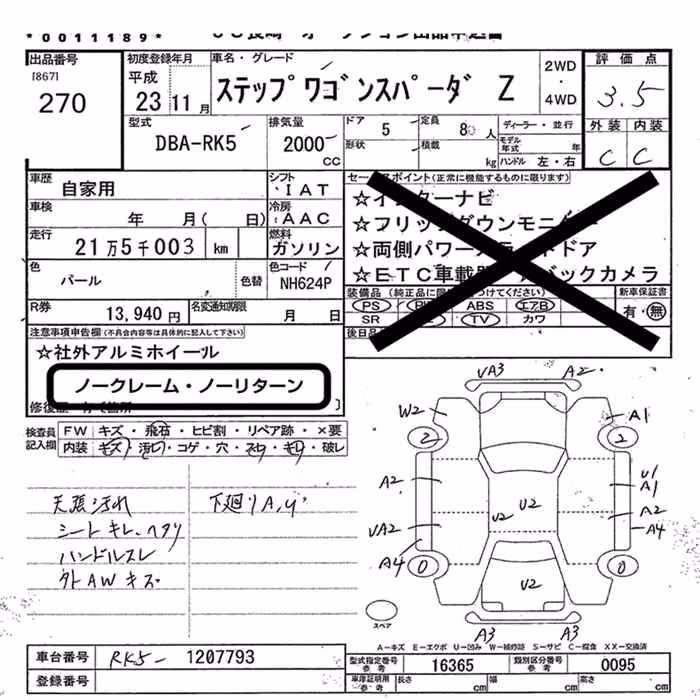 *0011189*
出品番号
[867]
270
初度登録年月
平成
23 11月
車名・グレード
ステップワゴンスパーダ Z
2WD
・
4WD
評価点
3.5
外装 内装
C C
型式
DBA-RK5
排気量
2000
CC
ドア 5
形状
定員 8 人
積載 kg
ディーラー・並行
モデル年式 年
ハンドル 左・右
車歴
自家用
シフト
IAT
車検
年 月( 日)
冷房
AAC
走行
21万5千003 km
燃料
ガソリン
色
パール
色替
色コード
NH624P
R券
13,940円
名変通知期限
月 日
セールスポイント(正常に機能するものに限ります)
☆インターナビ
☆フリップダウンモニター
☆両側パワースライドドア
☆ETC車載器 バックカメラ
装備品(純正品に限り
つけてください)
新車保証書
有・無
PS PW ABS エアB
SR TV カワ
後日品
注意事項申告欄(不具合内容等は具体的に記入して下さい)
☆社外アルミホイール
ノークレーム・ノーリターン
修復歴
検査員
記入欄
FW キズ・飛石・ヒビ割・リペア跡・×要
内装 キズ・汚レ・コゲ・穴・スレ・キレ・破レ
天張汚れ
シートキレ、ヘタリ
ハンドルスレ
外AWキズ
下廻りA,U
UA3 A2
W2 A1
2 2
A2 U1
A1
U2 U2
UA2 A2
A4
A4 0 0
U2
A3 A3
スペア
A－キズ E－エクボ U－凹み W－補修跡 S－サビ C－腐食 XX－交換済
車台番号
RK5- 1207793
登録番号
型式指定番号
参考
16365
類別区分番号
参考
0095
車庫証明用
参考
長さ cm
幅 cm
高さ cm